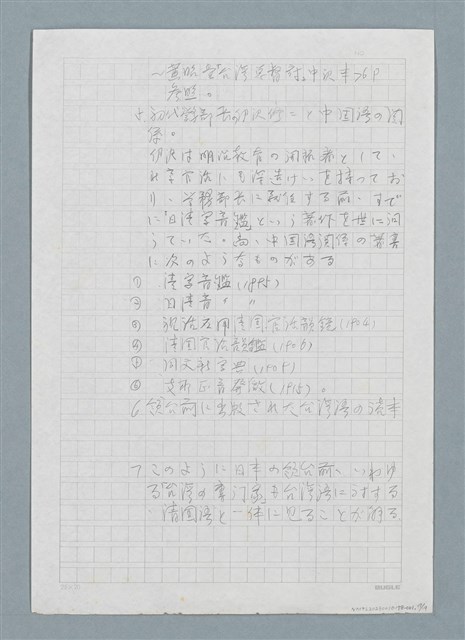 〜黄昭堂「台湾総督府」中沢本76P
参照。
5. 初代学務部長の伊沢修二と中国語の関
係。
伊沢は明治教育の開拓者として、
清官話にも深造けいを持ってお
り、学務部長に就任する前、すで
に「日清字音鑑」という著作を世に問
うていた。尚、中国語関係の著書
に次のようなものがある
① 清字音鑑(1895)
② 日清音 〃 〃
③ 視話応用清国官話韻鏡(1904)
④ 清国官話韻鑑(1906)
⑤ 同文新字典(1909)
⑥ 支那正音発微(1915)。
6. 領台前に出版された台湾語の読本
7 このように日本の領台前、いわゆ
る台湾の専門家も台湾語に対する
清国語と一体に見ることが解る